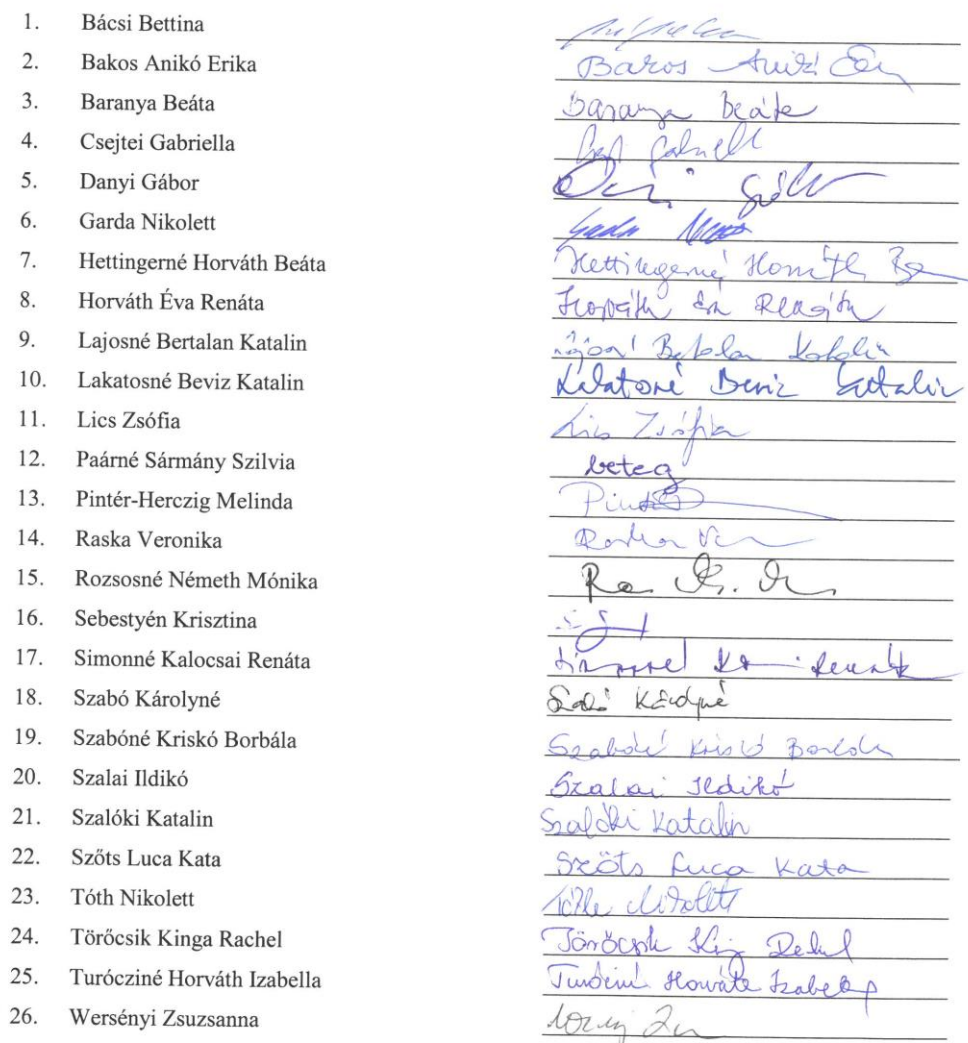 1. Bácsi Bettina
2. Bakos Anikó Erika Bakos Anikó
3. Baranya Beáta Baranya Beáta
4. Csejtei Gabriella
5. Danyi Gábor
6. Garda Nikolett
7. Hettingerné Horváth Beáta Hettingerné Horváth
8. Horváth Éva Renáta Horváth Éva Renáta
9. Lajosné Bertalan Katalin Katalin
10. Lakatosné Beviz Katalin Beviz Katalin
11. Lics Zsófia Lics Zsófia
12. Paárné Sármány Szilvia beteg
13. Pintér-Herczig Melinda
14. Raska Veronika Raska
15. Rozsosné Németh Mónika
16. Sebestyén Krisztina
17. Simonné Kalocsai Renáta
18. Szabó Károlyné Szabó Károlyné
19. Szabóné Kriskó Borbála Szabóné Kriskó Borbála
20. Szalai Ildikó Szalai Ildikó
21. Szalóki Katalin Szalóki Katalin
22. Szőts Luca Kata Szőts Luca Kata
23. Tóth Nikolett Tóth Nikolett
24. Törőcsik Kinga Rachel Törőcsik
25. Turócziné Horváth Izabella Horváth Izabella
26. Wersényi Zsuzsanna